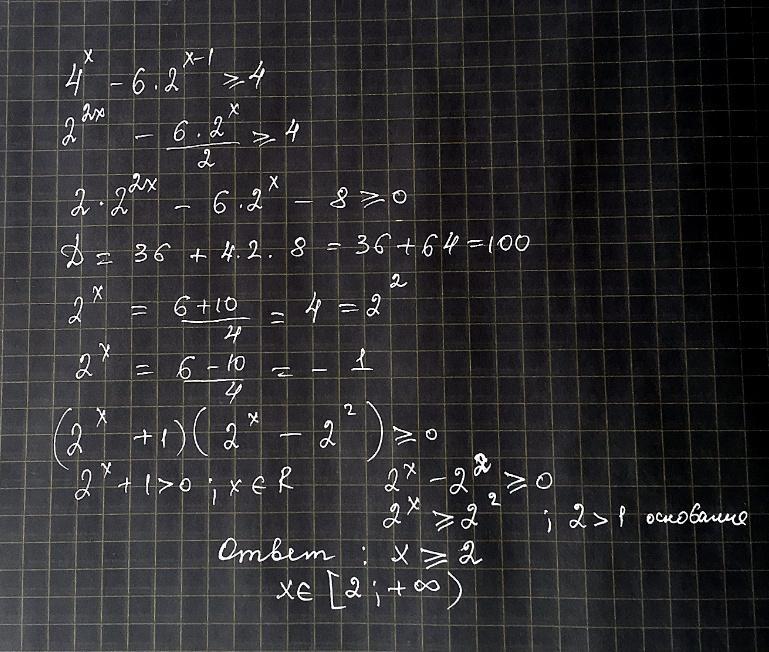 4^x - 6·2^(x-1) ⩾ 4
2^(2x) - (6·2^x)/2 ⩾ 4
2·2^(2x) - 6·2^x - 8 ⩾ 0
D = 36 + 4.2.8 = 36+64=100
2^x = (6+10)/4 = 4 = 2^2
2^x = (6-10)/4 = - 1
(2^x + 1)(2^x - 2^2) ⩾ 0
2^x + 1 > 0 ; x ∈ R 2^x - 2^2 ⩾ 0
2^x ⩾ 2^2 ; 2 > 1 основание
Ответ : x ⩾ 2
x ∈ [2 ; +∞)